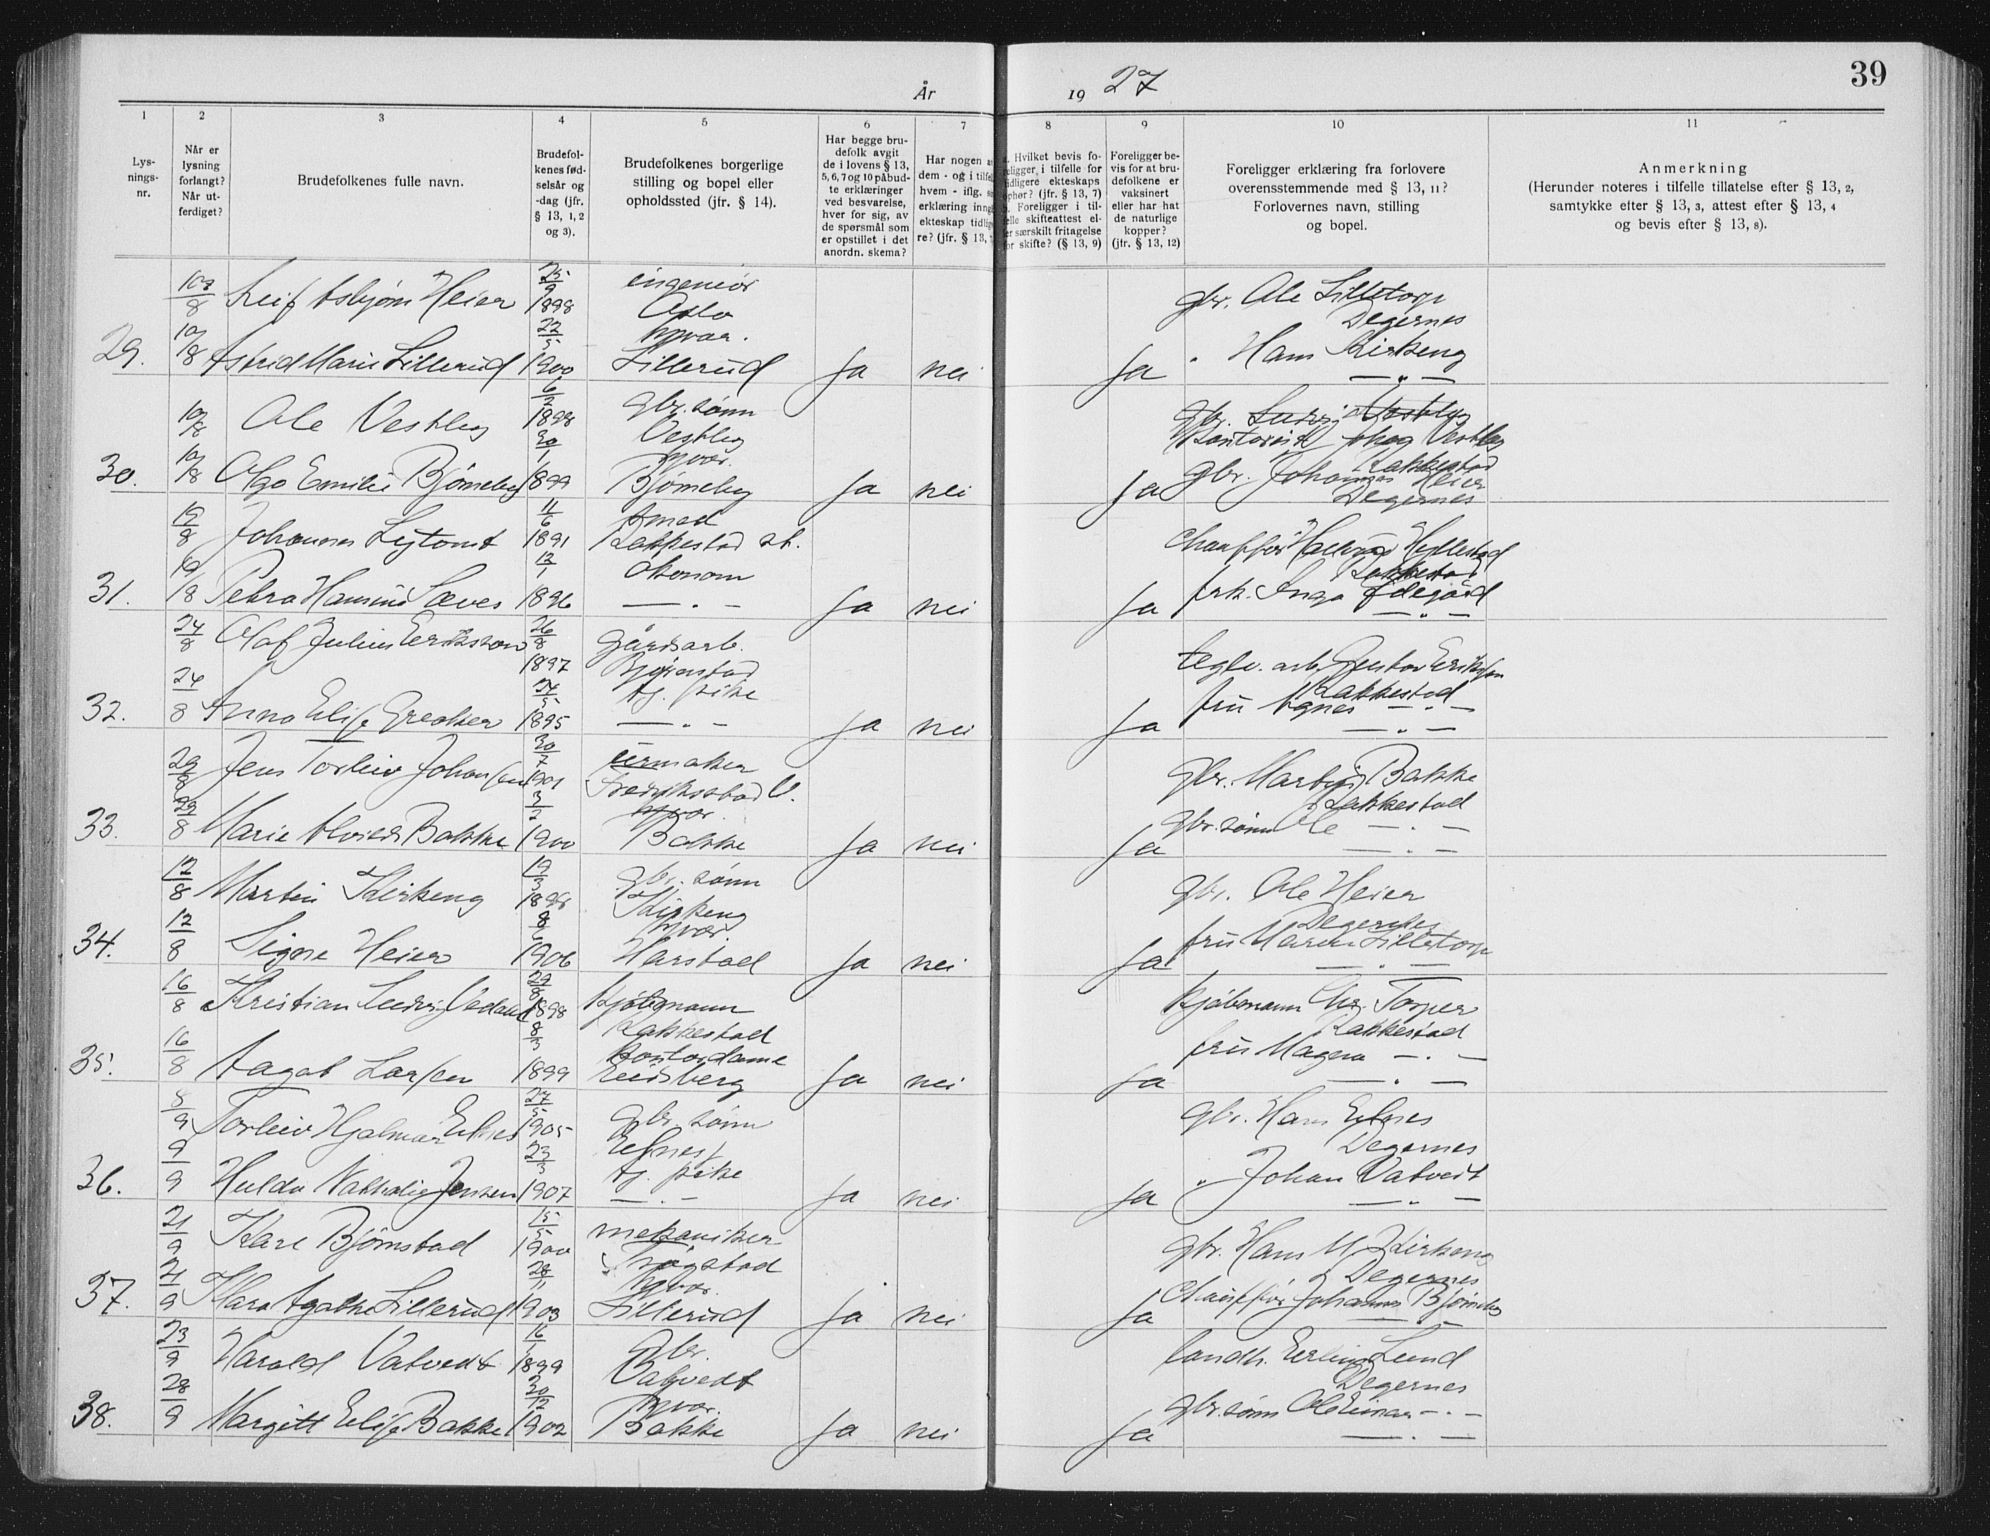 År 19 27
39
1 2 3 4 5 6 7 8 9 10 11
Lys-
nings-
nr.
Når er
lysning
forlangt?
Når ut-
ferdiget?
Brudefolkenes fulle navn.
Brudefol-
kenes fød-
selsår og
-dag (jfr.
§ 13, 1, 2
og 3).
Brudefolkenes borgerlige
stilling og bopel eller
opholdssted (jfr. § 14).
Har begge bru-
defolk avgit
de i lovens § 13,
5, 6, 7 og 10 påbud-
te erklæringer
ved besvarelse,
hver for sig, av
de spørsmål som
er opstillet i det
anordn. skema?
Har nogen a
dem - og i tilfel
hvem - iflg. s
erklæring inng
ekteskap tidlig
re? (jfr. § 13,
. Hvilket bevis fo-
religger, i tilfelle for
idligere ekteskaps
ophør? (jfr. § 13, 7)
. Foreligger i til-
elle skifteattest el-
er særskilt fritagelse
for skifte? (§ 13, 9)
Foreligger be-
vis for at bru-
defolkene er
vaksinert
eller har hat
de naturlige
kopper?
(jfr. § 13, 12)
Foreligger erklæring fra forlovere
overensstemmende med § 13, 11?
Forlovernes navn, stilling
og bopel.
Anmerkning
(Herunder noteres i tilfelle tillatelse efter § 13, 2,
samtykke efter § 13, 3, attest efter § 13, 4
og bevis efter § 13, 8).
10/8 Leif Asbjørn Heier 25/9 1898 ingeniør Oslo gbr. Ole Lilletorp Degernes
29. 10/8 Astrid Marie Lillerud 22/5 1900 hjvær. Lillerud Ja nei Ja " Hans Kirkeng — " —
10/8 Ole Vestby 6/2 1898 gbr. sønn Vestby gbr. Ludvig Vestby Kontorist Vestby Rakkestad
30. 10/8 Olga Emilie Bjørneby 30/1 1899 hjvær. Bjørneby Ja nei Ja gbr. Johannes Heier Degernes
19/8 Johannes 11/6 1891 smed Rakkestad st. chauffør Hyllestad Rakkestad
31. 19/8 Petra Hansine Sæves 12/1 1896 økonom — " — Ja nei Ja frk. Inga Ødegård — " —
24/8 Olaf Julius Eriksson 26/8 1897 gårdsarb. Bjørnstad teglv. arb. Gustav Eriksson Rakkestad
32. 24/8 Anna Elise Greaker 24/5 1895 tj. pike — " — Ja nei Ja fru Agnes — " — — " —
29/8 Jens Torleiv Johansen 30/7 1901 urmaker Fredriksstad V. gbr. Martin Bakke Rakkestad
33. 29/8 Marie Bakke 3/2 1900 hjvær. Bakke Ja nei Ja gbr. sønn Ole — " — — " —
12/8 Martin Kirkeng 19/3 gbr. sønn Kirkeng gbr. Ole Heier Degernes
34. 12/8 Signe Heier 8/6 1906 hjvær. Harstad Ja nei Ja fru Maren Lilletorp — " —
16/8 Kristian Ludvig 1898 kjøbmann Rakkestad kjøbmann Chr. Torper Rakkestad
35. 16/8 Aagot Larsen 8/3 1899 Kontordame Eidsberg Ja nei Ja fru Magna — " — — " —
8/9 Torleiv Hjalmar Elnes 27/5 1905 gbr. sønn Elnes gbr. Hans Elnes Degernes
36. 9/9 Hulda Nathalie Jensen 23/3 1907 tj. pike — " — Ja nei Ja " Johan Vatvedt — " —
21/9 Kare Bjørnstad 15/5 1900 mekaniker gbr. Hans M. Kirkeng Degernes
37. 21/9 Klara Agathe Lillerud 28/11 1903 hjvær. Lillerud Ja nei Ja Chauffør Johannes Bjørneby — " —
23/9 Harald Vatvedt 16/1 1899 gbr. Vatvedt landh. Erling Lund Degernes
38. 28/9 Margitt Elise Bakke 30/12 1902 hjvær. Bakke Ja nei Ja gbr. sønn Ole Einar — " — — " —